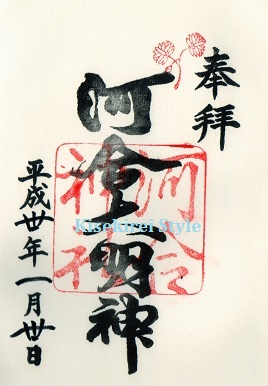 奉拝
河合明神
河合
神社
平成廿年一月廿日
Kisekirei Style